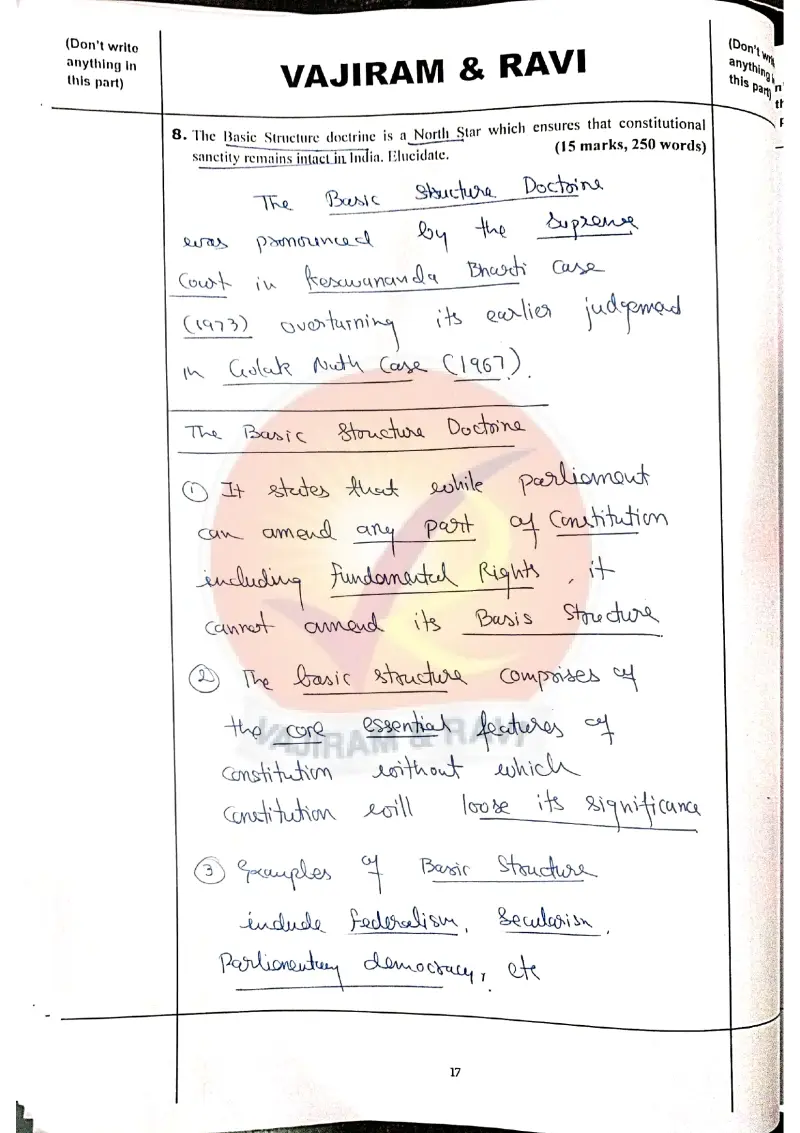 (Don't write
anything in
this part)
VAJIRAM & RAVI
(Don't write
anything in
this part)
8. The Basic Structure doctrine is a North Star which ensures that constitutional
sanctity remains intact in India. Elucidate. (15 marks, 250 words)
The Basic Structure Doctrine
was pronounced by the Supreme
Court in Keswananda Bharti Case
(1973) overturning its earlier judgement
in Golak Nath Case (1967).
The Basic Structure Doctrine
① It states that while parliament
can amend any part of Constitution
including Fundamental Rights, it
cannot amend its Basis Structure
② The basic structure comprises of
the core essential features of
constitution without which
Constitution will loose its significance
③ Examples of Basic Structure
include Federalism, Secularism,
Parliamentary democracy, etc
VAJIRAM & RAVI
17